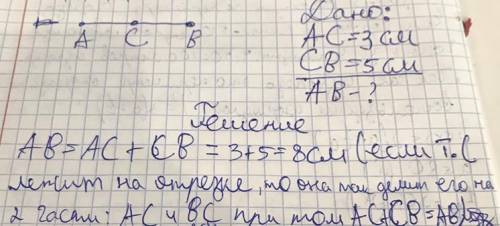 Дано:
A C B
AC=3 см
CB=5 см
AB-?
Решение
AB=AC+CB=3+5=8см (если т.C
лежит на отрезке, то она делит его на
2 части: AC и BC при том AC+CB=AB)